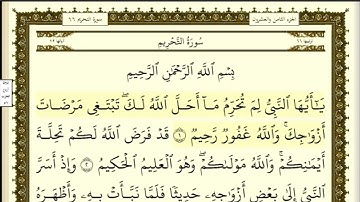 الجزء الثامن والعشرون
سورة التحريم ٦٦
ترتيبها ٦٦
آياتها ١٢
سُورَةُ التَّحْرِيمِ
بِسْمِ اللَّهِ الرَّحْمَٰنِ الرَّحِيمِ
يَٰٓأَيُّهَا النَّبِيُّ لِمَ تُحَرِّمُ مَآ أَحَلَّ اللَّهُ لَكَ ۖ تَبْتَغِي مَرْضَاتَ
أَزْوَٰجِكَ ۚ وَاللَّهُ غَفُورٌ رَّحِيمٌ ١ قَدْ فَرَضَ اللَّهُ لَكُمْ تَحِلَّةَ
أَيْمَٰنِكُمْ ۚ وَاللَّهُ مَوْلَىٰكُمْ ۖ وَهُوَ الْعَلِيمُ الْحَكِيمُ ٢ وَإِذْ أَسَرَّ
النَّبِيُّ إِلَىٰ بَعْضِ أَزْوَٰجِهِۦ حَدِيثًا فَلَمَّا نَبَّأَتْ بِهِۦ وَأَظْهَرَهُ